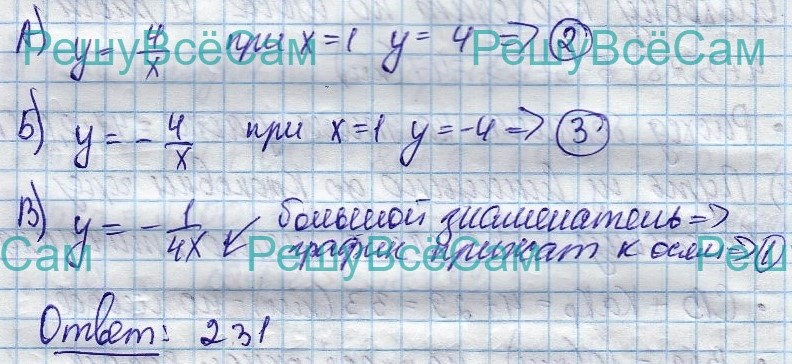 А) y = 4/x при x = 1 y = 4 => 2
РешуВсёСам РешуВсёСам
Б) y = - 4/x при x = 1 y = -4 => 3
В) y = - 1/4x ↙ большой знаменатель =>
график прижат к осям => 1
Сам РешуВсёСам Реш
Ответ: 231